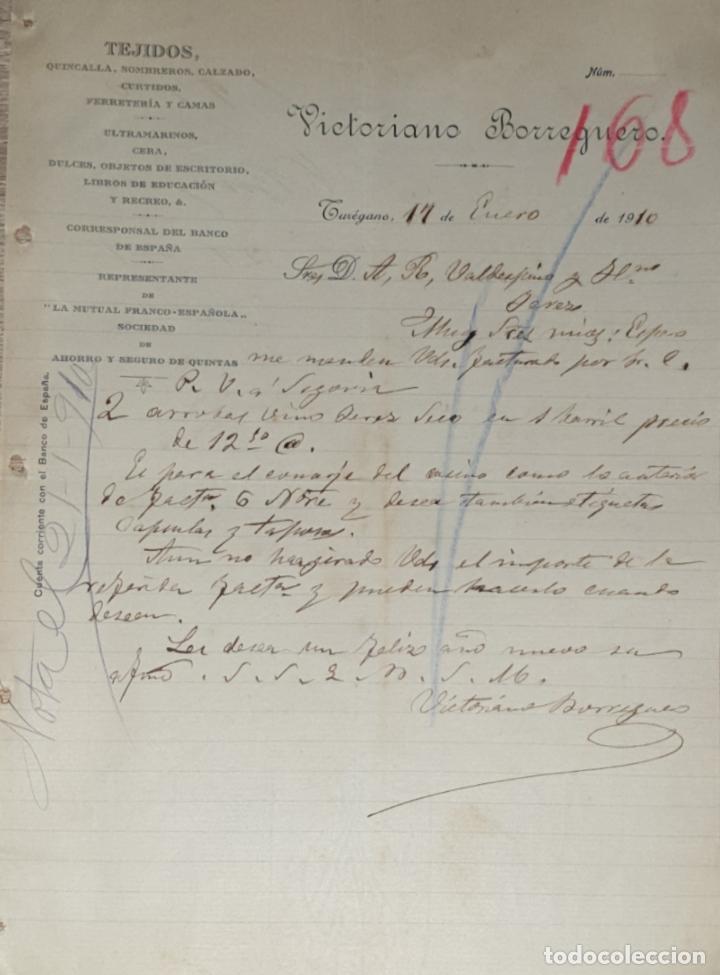 TEJIDOS,
QUINCALLA, SOMBREROS, CALZADO,
CURTIDOS,
FERRETERÍA Y CAMAS
ULTRAMARINOS,
CERA,
DULCES, OBJETOS DE ESCRITORIO,
LIBROS DE EDUCACIÓN
Y RECREO, &.
CORRESPONSAL DEL BANCO
DE ESPAÑA
REPRESENTANTE
DE
"LA MUTUAL FRANCO-ESPAÑOLA„
SOCIEDAD
DE
AHORRO Y SEGURO DE QUINTAS
Cuenta corriente con el Banco de España.
Nota el 21-1-910
Núm.
168
Victoriano Borreguero.
Turégano, 17 de Enero de 1910
Sres D. A. R. Valdespino y Hno
Jerez
Muy Sres mios: Espero
me manden Vds. facturado por fr. C.
P. V. a Segovia
2 arrobas vino Jerez Seco en 1 barril precio
de 12 50 @.
Es para el conserje del casino como la anterior
de facta 6 Nbre y desea tambien etiquetas
Capsulas y tapones.
Aun no han girado Vds el importe de la
referida facta y pueden hacerlo cuando
deseen.
Les desea un feliz año nuevo su
afmo. S. S. Q. B. S. M.
Victoriano Borreguero
todocoleccion